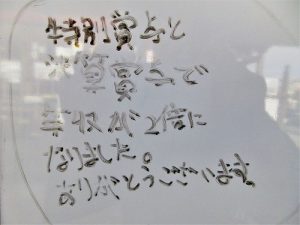 特別賞与と
決算賞与で
年収が2倍に
なりました。
ありがとうございます